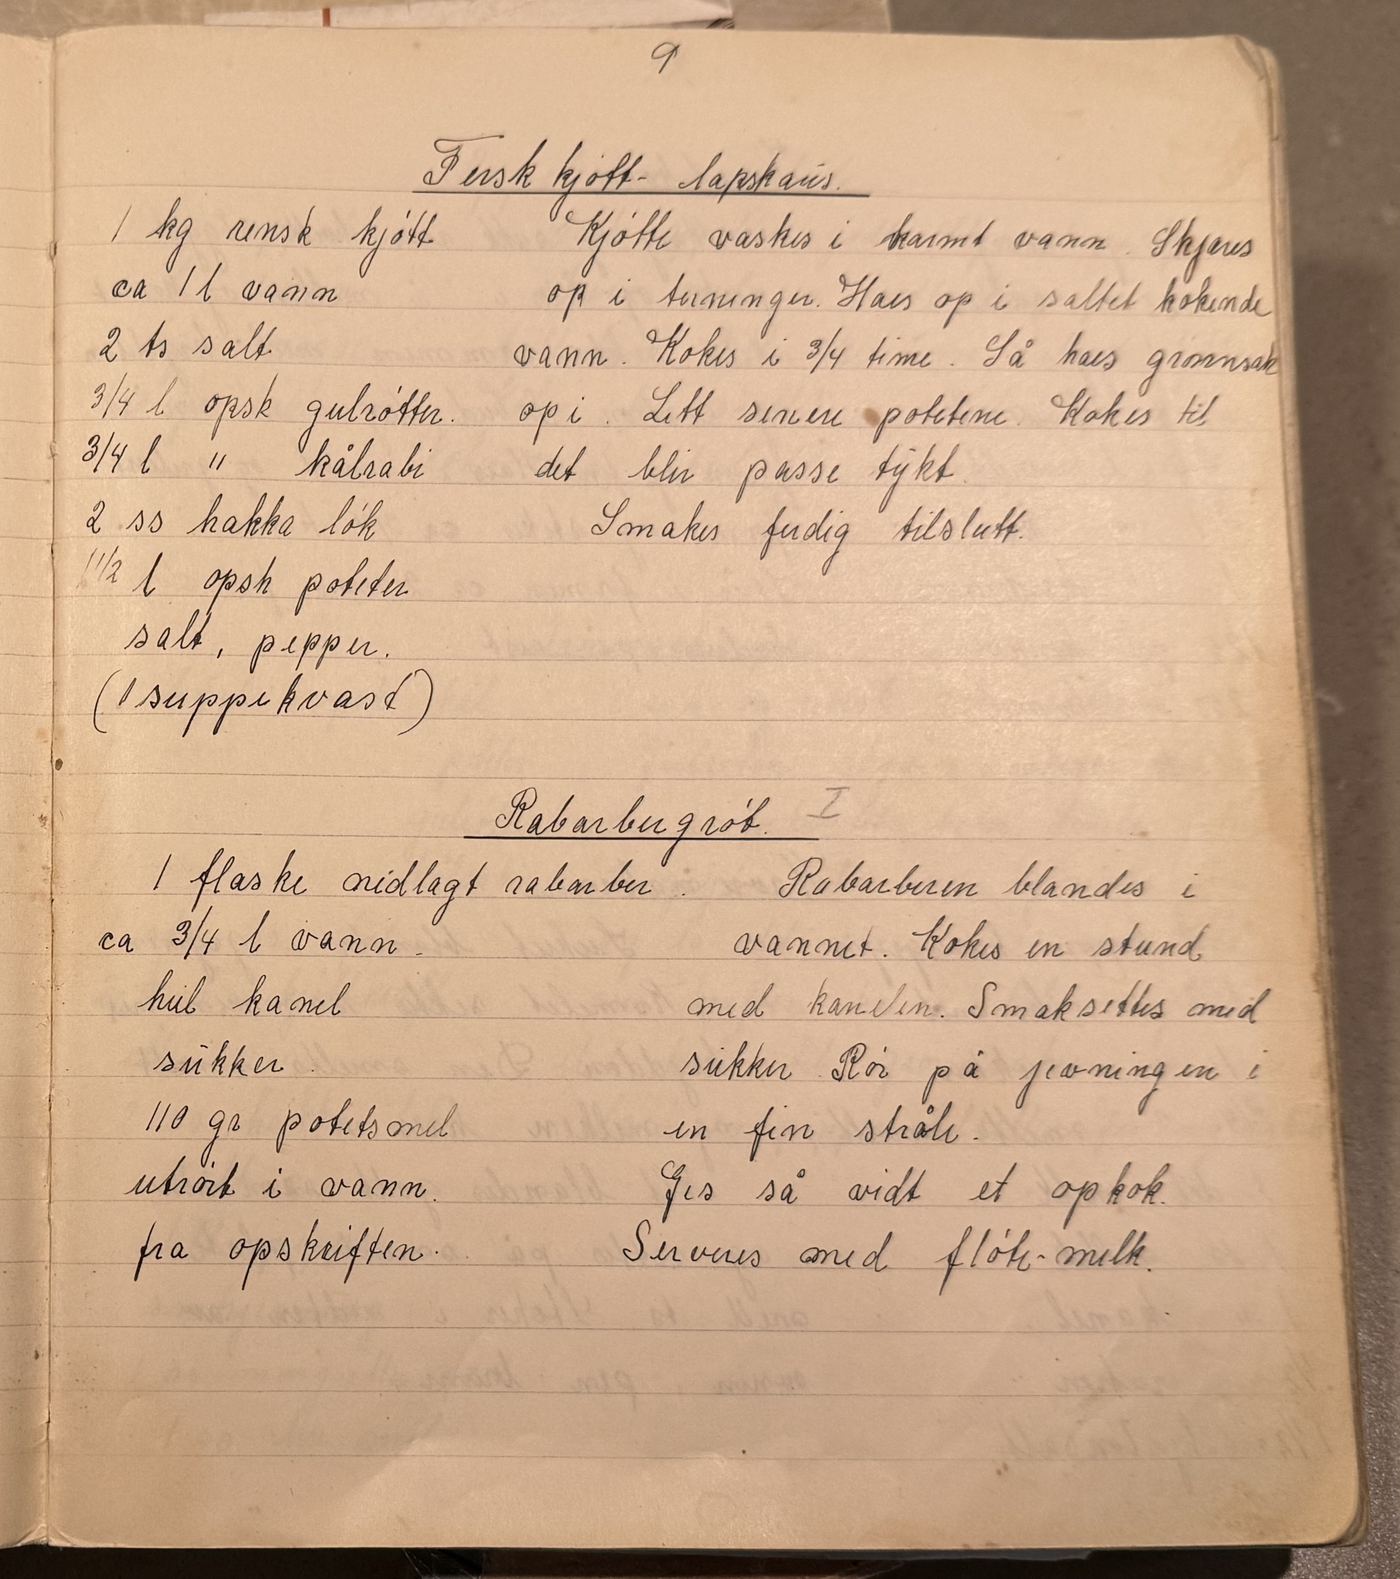 9
Fersk kjøtt- lapskaus.
1 kg rensk kjøtt
ca 1 l vann
2 ts salt
3/4 l opsk gulrøtter.
3/4 l " kålrabi
2 ss hakka løk
1 1/2 l opsk poteter
salt, pepper.
(1 suppekvast)
Kjøtte vaskes i karmt vann. Skjæres
op i terninger. Haes op i saltet kokende
vann. Kokes i 3/4 time. Så haes grønnsak
op i. Litt senere potetene. Kokes til
det blir passe tykt.
Smakes ferdig tilslutt.
Rabarbergrøt. I
1 flaske nedlagt rabarber.
ca 3/4 l vann.
hel kanel
sukker.
110 gr potetsmel
utrørt i vann.
fra opskriften.
Rabarberen blandes i
vannet. Kokes en stund
med kanelen. Smaksettes med
sukker. Rør på jevningen i
en fin stråle.
Ges så vidt et opkok.
Serveres med fløte-melk.